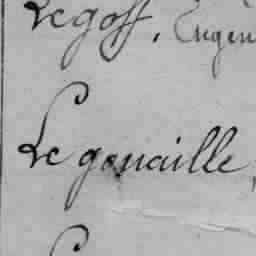 Legoff, Eugèn
Le gouaille,